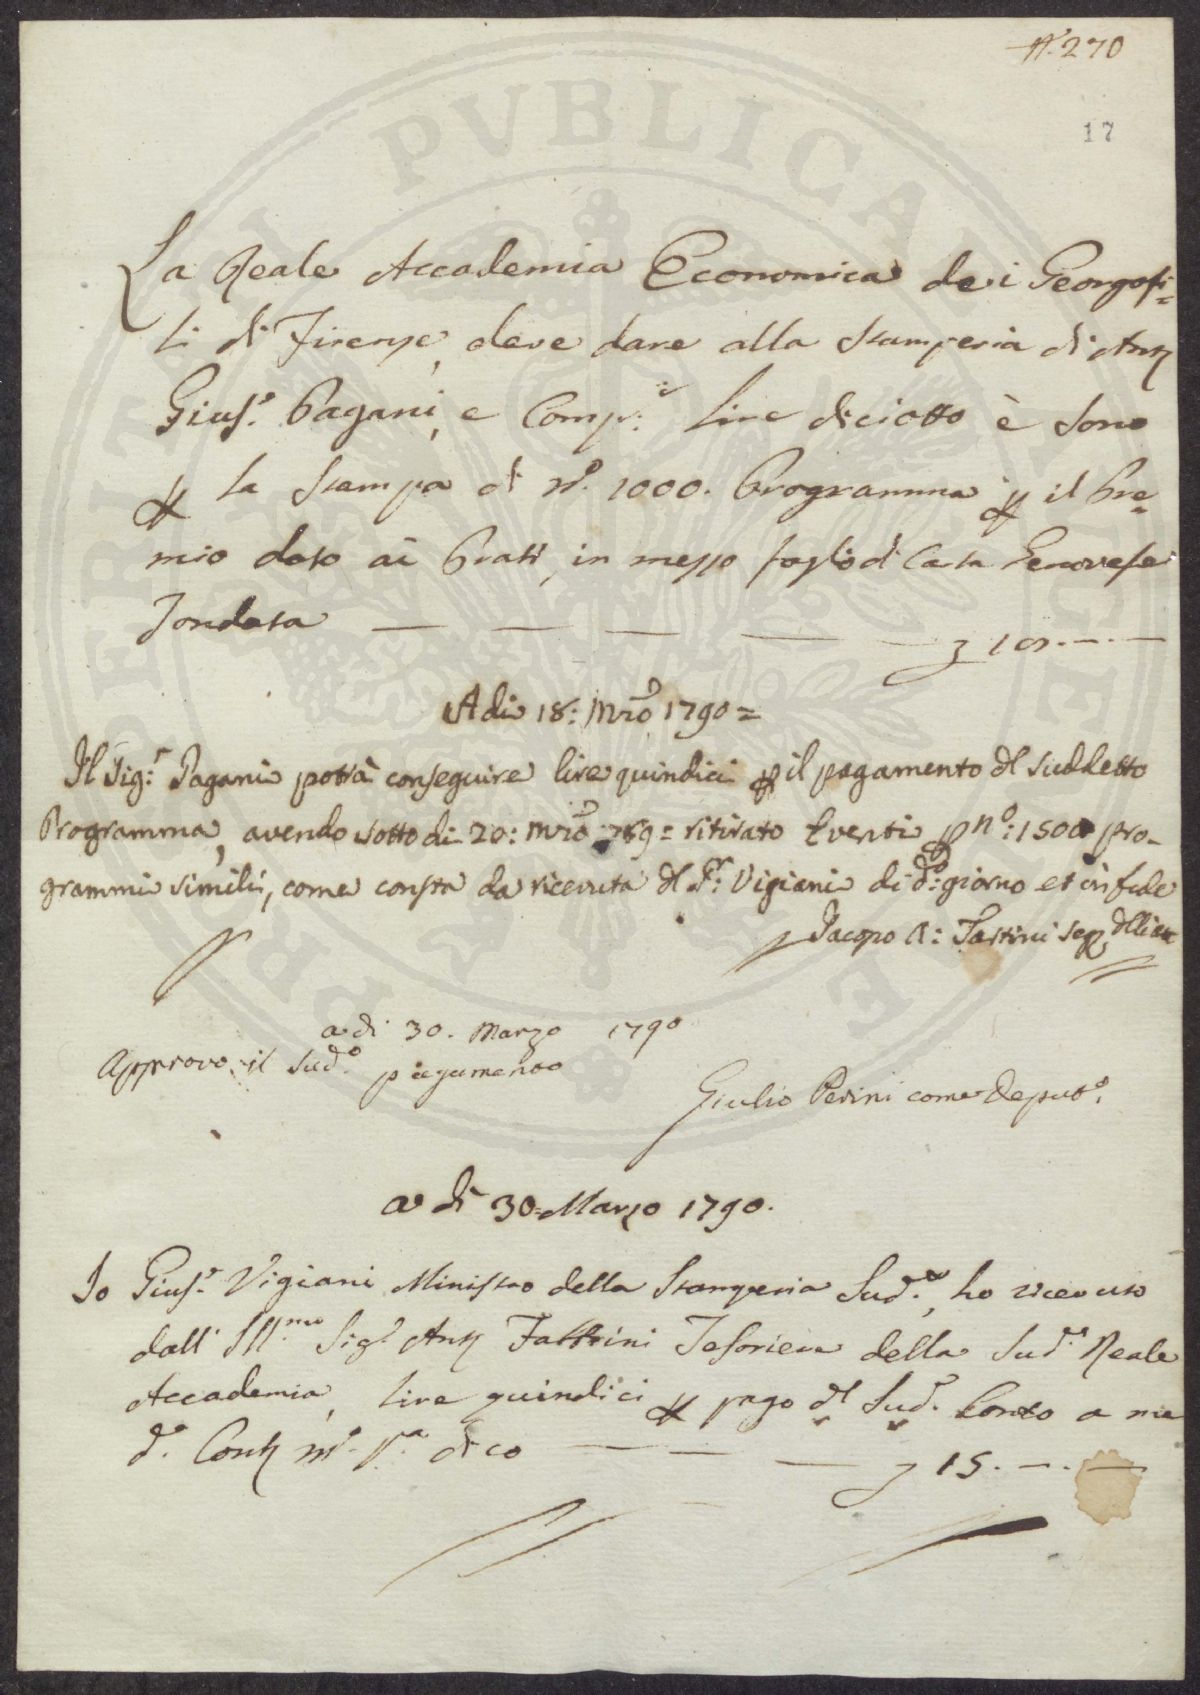 N. 270
17
La Reale Accademia Economica dei Georgofi=
li di Firenze, deve dare alla Stamperia di Anto
Gius.e Pagani, e Comp.i Lire diciotto è sono
p la Stampa di N.o 1000. Programma p il Pre=
mio dato ai Prati, in mezzo foglio di Carta Genovese
Tondata — — — — — £ 18. — . —
A di 18: Mrzo 1790 =
Il Sig:r Pagani potrà conseguire lire quindici p il pagamento dl suddetto
Programma, avendo sotto di 20: Mrzo 789 = ritirato lire venti p no: 1500 pro-
grammi simili, come consta da ricevuta dl Sr: Vigiani di do: giorno et in fede
Jacopo A: Tartini Seg
a di 30. Marzo 1790
Approvo il Sud.o pagamento
Giulio Perini come Deput.o
a di 30 = Marzo 1790.
Io Gius.e Vigiani Ministro della Stamperia Sud.a, ho ricevuto
dall' Ill.mo Sig.r Anto Fabbrini Tesoriere della Sud.a Reale
Accademia, lire quindici p pago dl Sud.o Conto a me
d.o Conti m.o p.a dico — — — £ 15. — . —
PUBLICAE UTILITATI
PROSPERITATI